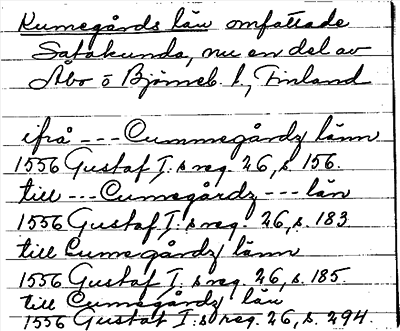 Kumegårds län omfattade
Satakunda, nu en del av
Åbo o Björneb. l., Finland
ifrå --- Cummegårdz länn
1556 Gustaf I:s reg. 26, s. 156.
till --- Cumegårdz --- län
1556 Gustaf I:s reg. 26, s. 183
till Cumegårdz länn
1556 Gustaf I:s reg. 26, s. 185.
till Cumegårdz län
1556 Gustaf I:s reg. 26, s. 294.